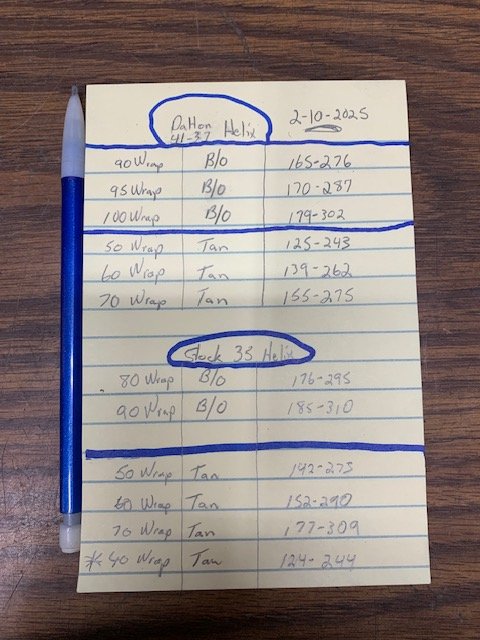 Dalton Helix 2-10-2025
41-37
90 Wrap B/O 165-276
95 Wrap B/O 170-287
100 Wrap B/O 179-302
50 Wrap Tan 125-243
60 Wrap Tan 139-262
70 Wrap Tan 155-275
Stock 35 Helix
80 Wrap B/O 176-295
90 Wrap B/O 185-310
50 Wrap Tan 142-275
60 Wrap Tan 152-290
70 Wrap Tan 177-309
* 40 Wrap Tan 124-244